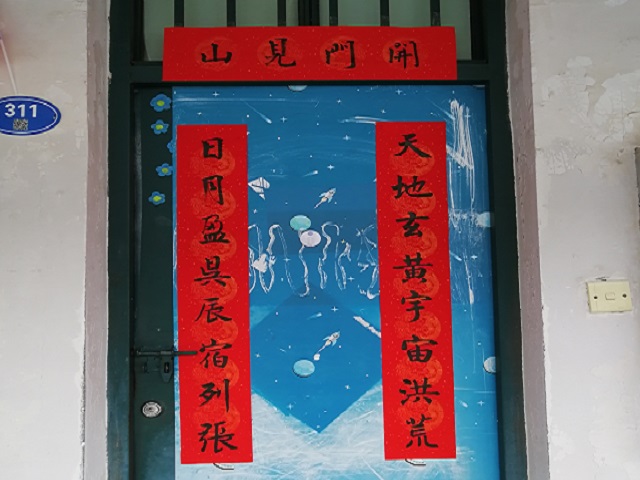 開門見山
天地玄黃宇宙洪荒
日月盈昃辰宿列張
311